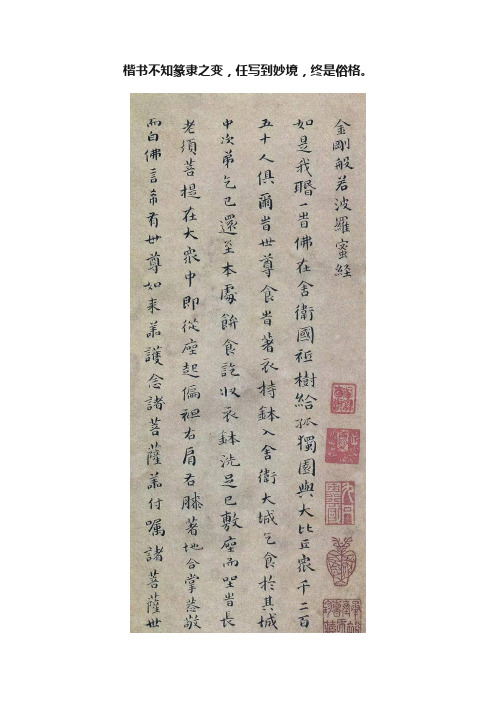 楷书不知篆隶之变，任写到妙境，终是俗格。
金剛般若波羅蜜経
如是我聞一旹佛在舍衛國祗樹給孤獨園與大比丘衆千二百
五十人俱爾旹世尊食旹著衣持鉢入舍衛大城乞食於其城
中次第乞已還至本處飰食訖收衣鉢洗足已敷座而坐旹長
老須菩提在大衆中即從座起偏袒右肩右膝著地合掌恭敬
而白佛言希有世尊如来善護念諸菩薩善付嘱諸菩薩世